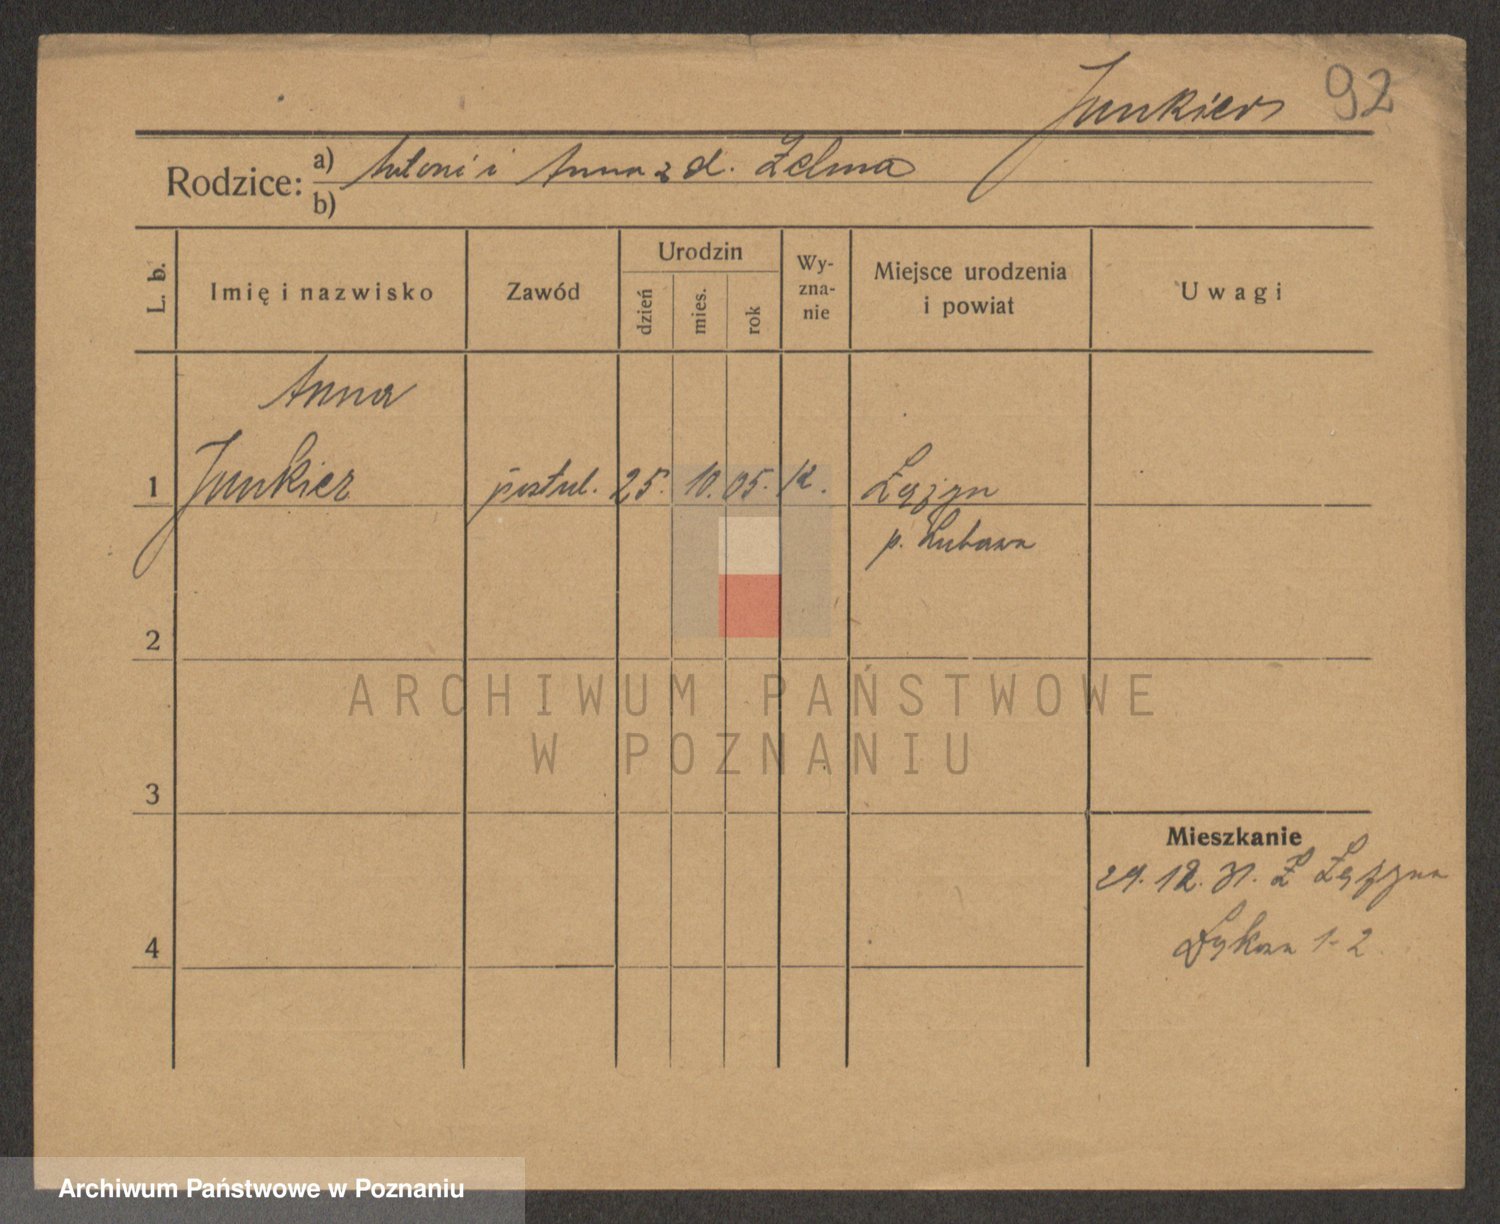 Junkier 92
Rodzice: a) Antoni i Anna z d. Zelma
b)
L. b. Imię i nazwisko Zawód Urodzin dzień mies. rok Wyznanie Miejsce urodzenia i powiat Uwagi
Anna
1 Junkier postul. 25. 10. 05. k. Łążyn
p. Lubawa
2
ARCHIWUM PAŃSTWOWE
W POZNANIU
3
Mieszkanie
29. 12. 31. Z Łążyna
4 1-2
Archiwum Państwowe w Poznaniu